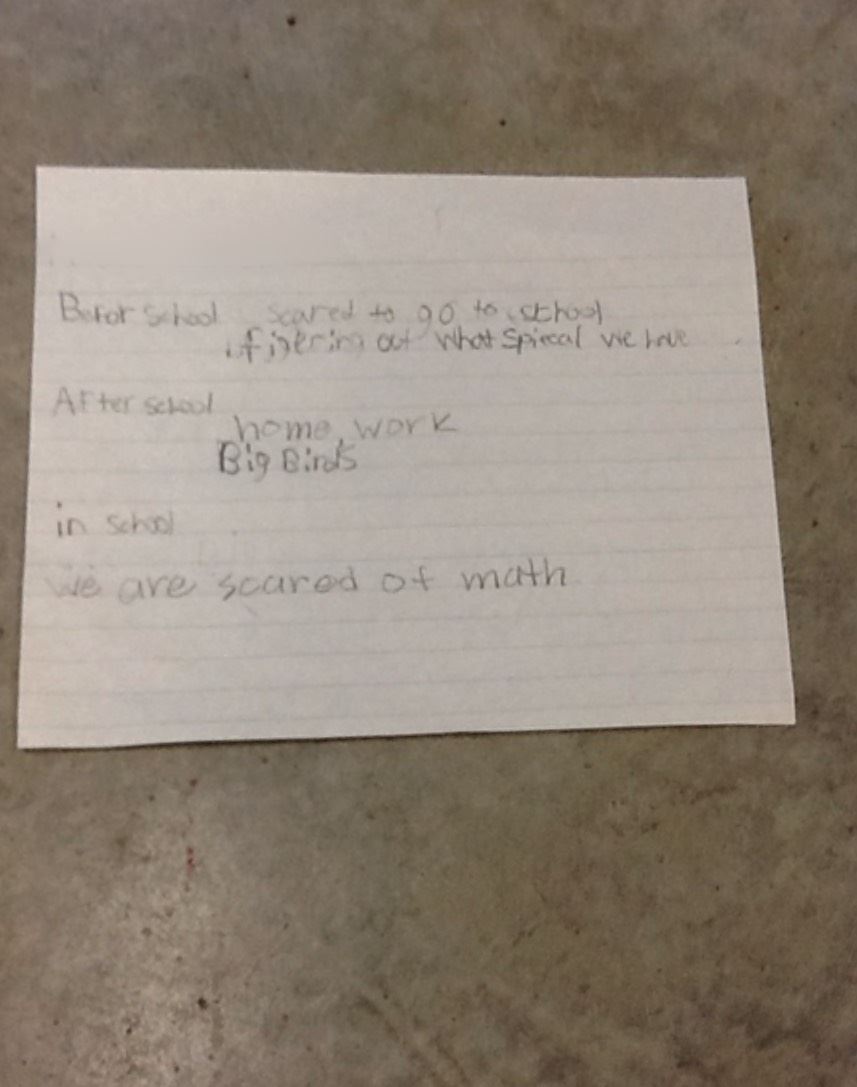 Befor School scared to go to school
figering out what Spircal we have
After school
home work
Big Birds
in school
We are scared of math